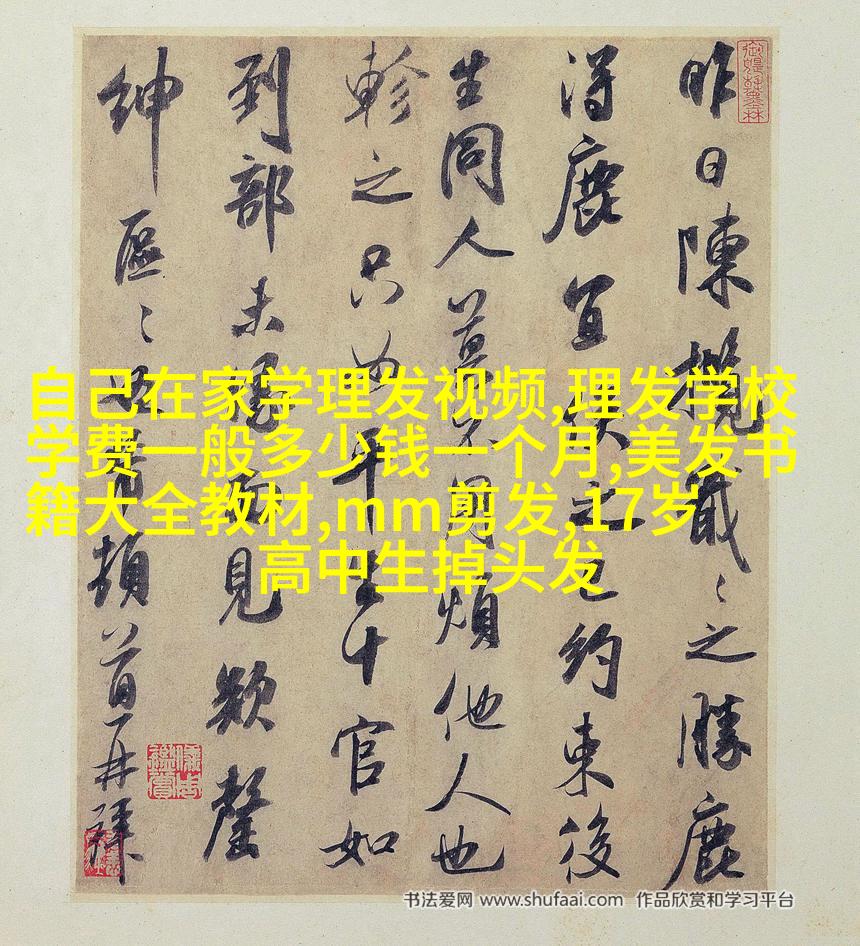 昨日陳攬戢〻之勝鹿
得鹿宜之已約束後
生同人剪煩他人也
軫之只如十官如
到部未見欵罄
紳區〻頓首再拜
自己在家学理发视频,理发学校
学费一般多少钱一个月,美发书
籍大全教材,mm剪发,17岁
高中生掉头发
书法爱网 www.shufaai.com 作品欣赏和学习平台